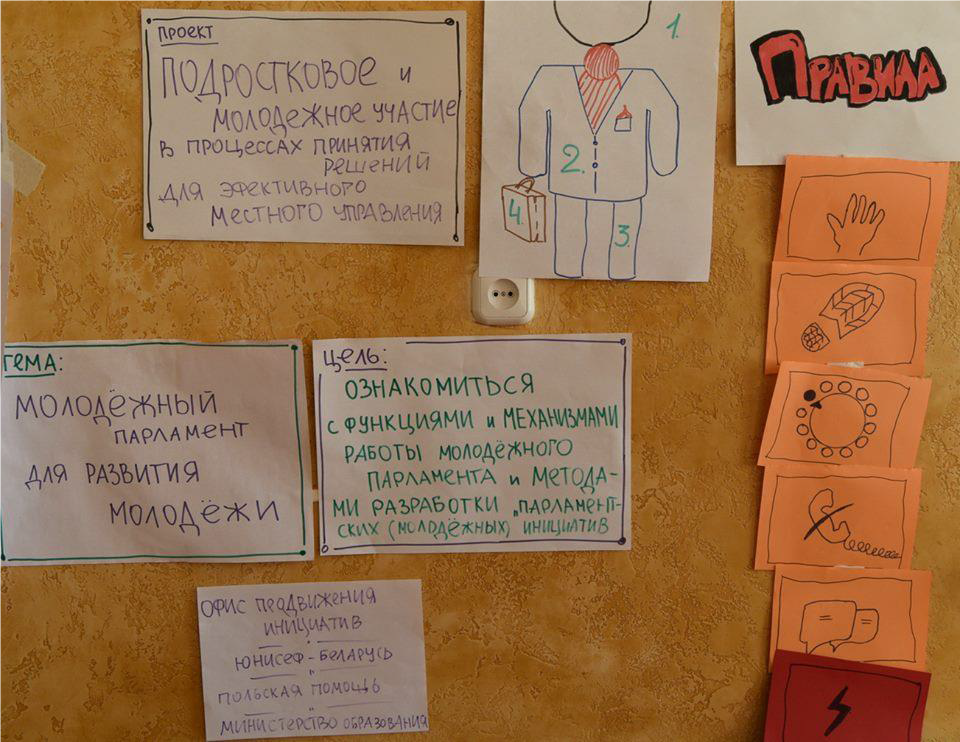 ПРОЕКТ
ПОДРОСТКОВОЕ и
МОЛОДЕЖНОЕ УЧАСТИЕ
В ПРОЦЕССАХ ПРИНЯТИЯ
РЕШЕНИЙ
ДЛЯ ЭФЕКТИВНОГО
МЕСТНОГО УПРАВЛЕНИЯ
1.
2.
3.
4.
ПРАВИЛА
ТЕМА:
МОЛОДЁЖНЫЙ
ПАРЛАМЕНТ
ДЛЯ РАЗВИТИЯ
МОЛОДЁЖИ
ЦЕЛЬ:
ОЗНАКОМИТЬСЯ
С ФУНКЦИЯМИ и МЕХАНИЗМАМИ
РАБОТЫ МОЛОДЁЖНОГО
ПАРЛАМЕНТА и МЕТОДА-
МИ РАЗРАБОТКИ „ПАРЛАМЕНТ-
СКИХ (МОЛОДЁЖНЫХ) ИНИЦИАТИВ
ОФИС ПРОДВИЖЕНИЯ
ИНИЦИАТИВ
ЮНИСЕФ - БЕЛАРУСЬ
ПОЛЬСКАЯ ПОМОЩЬ
МИНИСТЕРСТВО ОБРАЗОВАНИЯ